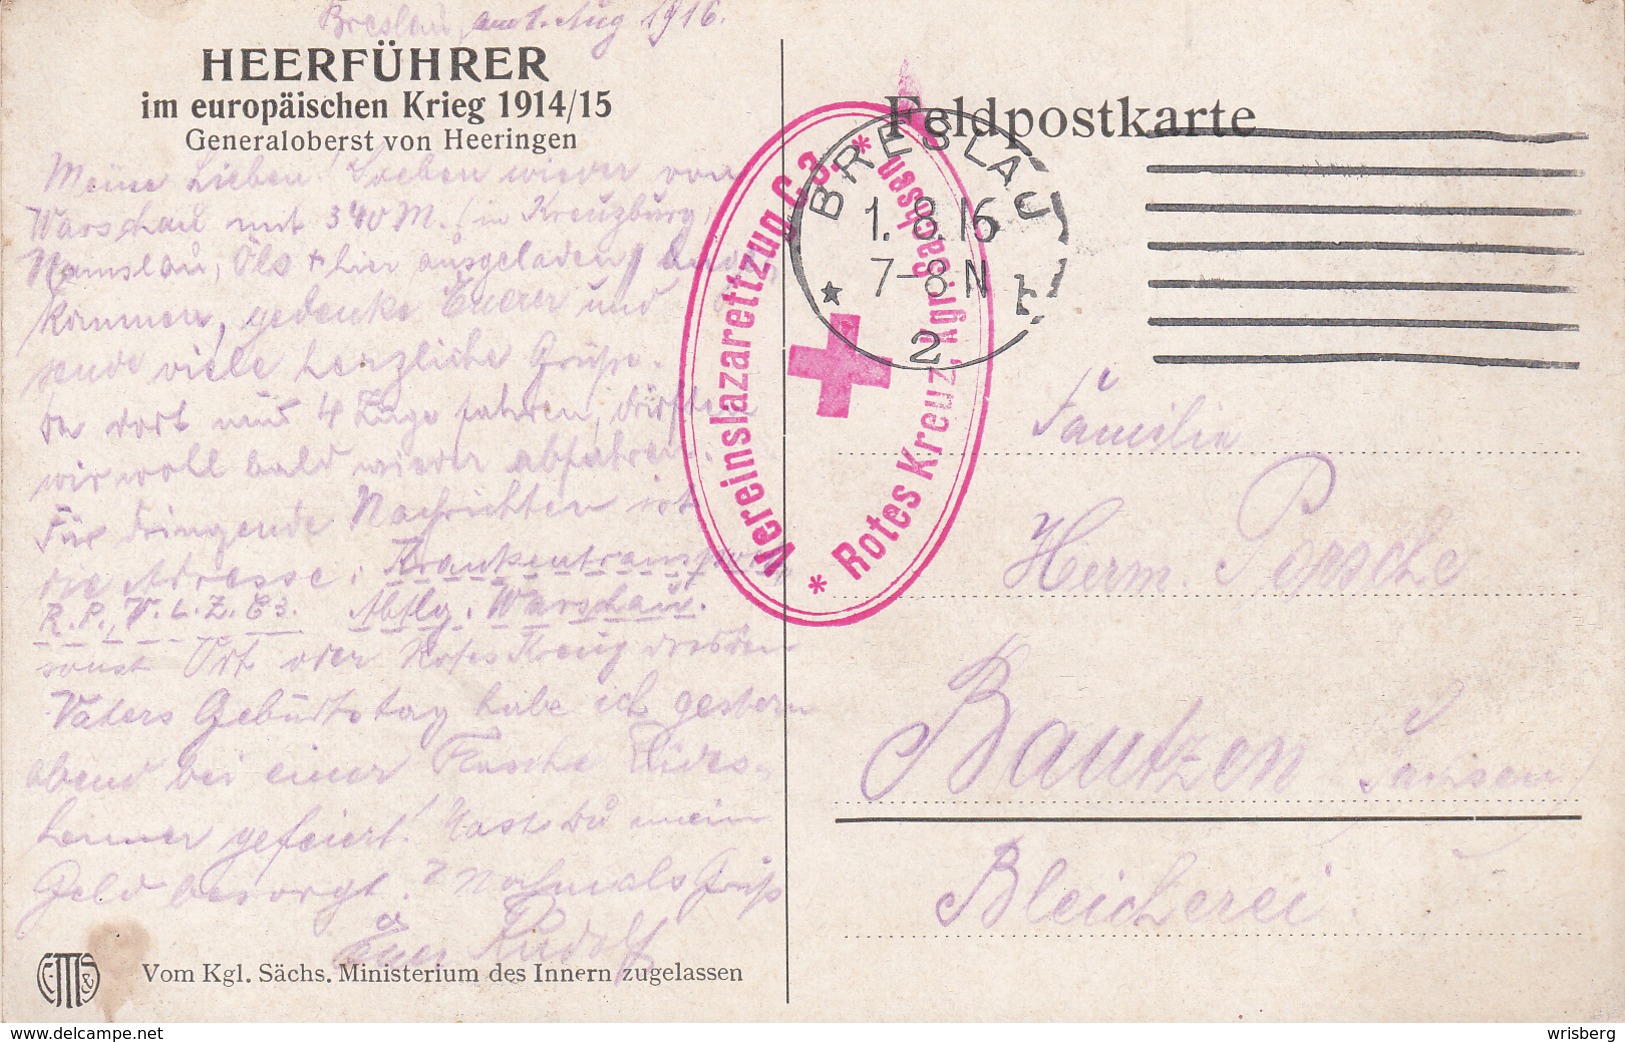 Breslau, am 1. Aug 1916.
HEERFÜHRER
im europäischen Krieg 1914/15
Generaloberst von Heeringen
Meine Lieben! Soeben wieder von
Warschau mit 340 M. (in Kreuzburg,
Namslau, Öls + hier ausgeladen)
kommen, gedenke Eurer und
sende viele herzliche Grüße.
Da dort nur 4 Züge fahren, dürften
wir woll bald wieder abfahren.
Für dringende Nachrichten ist
die Adresse: Krankentransport
R.P., V.L.Z. C3. Abtlg. Warschau.
sonst Ort oder Rotes Kreuz Dresden
Vaters Geburtstag habe ich gestern
abend bei einer Flasche Rüdes-
heimer gefeiert! Hast Du mein
Geld besorgt? Nochmals Gruß
Euer Rudolf
Vom Kgl. Sächs. Ministerium des Innern zugelassen
Feldpostkarte
Vereinslazarettzug C. 3. * Rotes Kreuz, Kgr. Sachsen *
BRESLAU
1. 8. 16
7-8 N
* 2
Familie
Herm. Popsche
Bautzen Sachsen
Bleicherei
delcampe.net
wrisberg